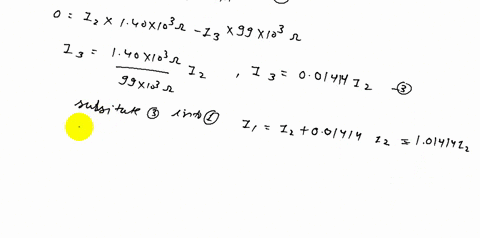 0 = I₂ × 1.40×10³ Ω - I₃ × 99×10³ Ω
I₃ = 1.40×10³ Ω / 99×10³ Ω I₂ , I₃ = 0.01414 I₂ -③
subsitute ③ into ① I₁ = I₂ + 0.01414 I₂ = 1.01414 I₂